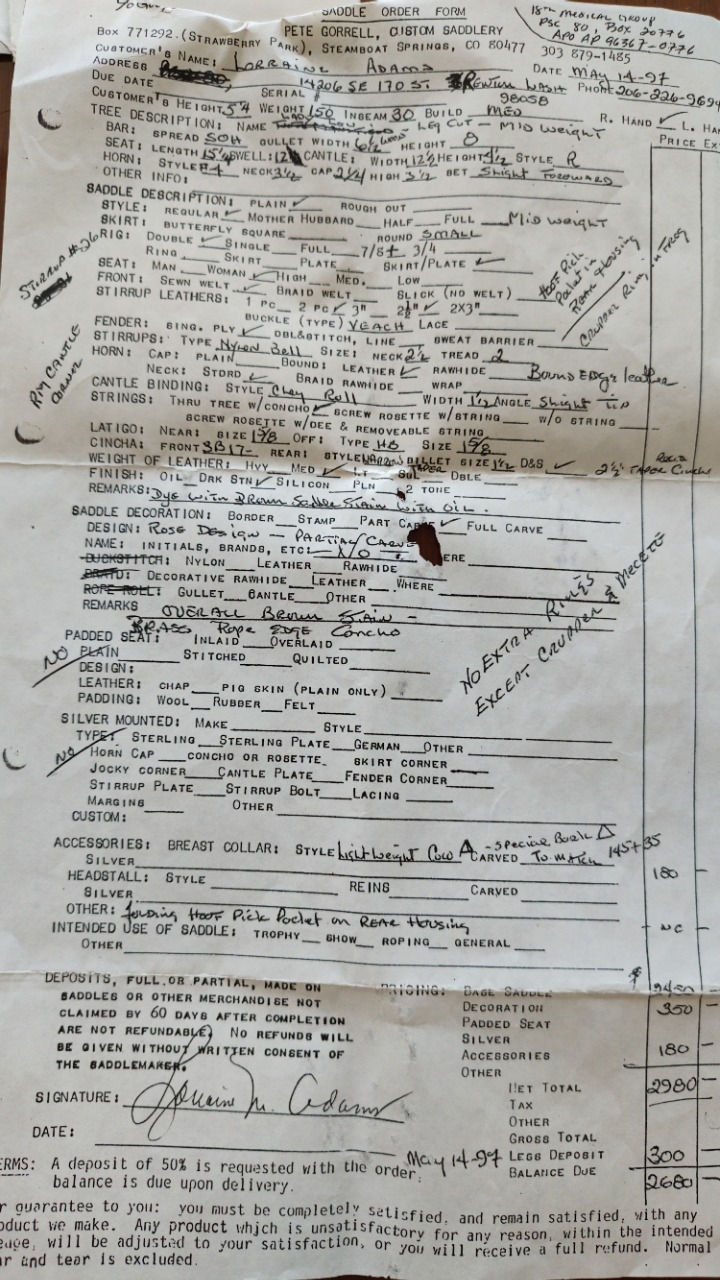 SADDLE ORDER FORM
18th MEDICAL GROUP
PSC 80, BOX 20776
APO AP 96367-0776
PETE GORRELL, CUSTOM SADDLERY
Box 771292 (STRAWBERRY PARK), STEAMBOAT SPRINGS, CO 80477 303 879-1485
CUSTOMER'S NAME: LORRAINE ADAMS DATE MAY 14-97
ADDRESS 14206 SE 170 ST. RENTON WASH PHONE 206-226-9694
98058
DUE DATE SERIAL #
CUSTOMER'S HEIGHT 5'4 WEIGHT 150 INSEAM 30 BUILD MED R. HAND ✓ L. HAN
TREE DESCRIPTION: NAME LEG CUT - MID WEIGHT PRICE EX
BAR: SPREAD SQH GULLET WIDTH 6 1/2 HEIGHT 8
SEAT: LENGTH 15 1/2 SWELL: 12 CANTLE: WIDTH 12 1/2 HEIGHT 4 1/2 STYLE R
HORN: STYLE #4 NECK 3 1/2 CAP 2 1/4 HIGH 3 1/2 SET Slight Foreward
OTHER INFO:
SADDLE DESCRIPTION: PLAIN ✓ ROUGH OUT
STYLE: REGULAR ✓ MOTHER HUBBARD HALF FULL Mid weight
SKIRT: BUTTERFLY SQUARE ROUND SMALL
RIG: DOUBLE ✓ SINGLE FULL 7/8 ± 3/4
RING SKIRT PLATE SKIRT/PLATE ✓
SEAT: MAN WOMAN ✓ HIGH MED. LOW
FRONT: SEWN WELT ✓ BRAID WELT SLICK (NO WELT)
STIRRUP LEATHERS: 1 PC 2 PC ✓ 3" 2½" ✓ 2X3"
BUCKLE (TYPE) VEACH LACE
STIRRUP #26
HOOF PICK
Pocket in
REAR HOUSING
CRUPPER RING IN TREE
FENDER: SING. PLY ✓ DBL&STITCH, LINE SWEAT BARRIER
STIRRUPS: TYPE Nylon Bell SIZE: NECK 2½ TREAD 2
HORN: CAP: PLAIN BOUND: LEATHER ✓ RAWHIDE Bound EDGE leather
NECK: STDRD ✓ BRAID RAWHIDE WRAP
CANTLE BINDING: STYLE Chey Roll WIDTH 1½ ANGLE Slight Tip
STRINGS: THRU TREE W/CONCHO ✓ SCREW ROSETTE W/STRING W/O STRING
SCREW ROSETTE W/DEE & REMOVEABLE STRING
LATIGO: NEAR: SIZE 1 5/8 OFF: TYPE HB SIZE 1 5/8
CINCHA: FRONT SB17- REAR: STYLE NARROW BILLET SIZE 1½ D&S ✓ 2½" TAPER Cincha
WEIGHT OF LEATHER: HVY MED ✓ LT DBLE
FINISH: OIL DRK STN ✓ SILICON PLN 2 TONE
REMARKS: Dye with Brown Saddle Stain with OIL.
SADDLE DECORATION: BORDER STAMP PART CARVE ✓ FULL CARVE
DESIGN: ROSE DESIGN - PARTIAL CARVE
NAME: INITIALS, BRANDS, ETC: N/O
BUCKSTITCH: NYLON LEATHER RAWHIDE
BRAID: DECORATIVE RAWHIDE LEATHER WHERE
ROPE ROLL: GULLET CANTLE OTHER
REMARKS OVERALL BROWN STAIN -
BRASS Rope EDGE Concho
NO EXTRA RINGS
EXCEPT CRUPPER & MECETE
PADDED SEAT: INLAID OVERLAID
NO PLAIN STITCHED QUILTED
DESIGN:
LEATHER: CHAP PIG SKIN (PLAIN ONLY)
PADDING: WOOL RUBBER FELT
SILVER MOUNTED: MAKE STYLE
TYPE: STERLING STERLING PLATE GERMAN OTHER
NO HORN CAP CONCHO OR ROSETTE SKIRT CORNER
JOCKY CORNER CANTLE PLATE FENDER CORNER
STIRRUP PLATE STIRRUP BOLT LACING
MARGINS OTHER
CUSTOM:
ACCESSORIES: BREAST COLLAR: STYLE Light weight CARVED To match 145+35
SILVER 180 -
HEADSTALL: STYLE REINS CARVED
SILVER
OTHER: folding HOOF Pick Pocket on REAR Housing NC -
INTENDED USE OF SADDLE: TROPHY SHOW ROPING GENERAL
OTHER
DEPOSITS, FULL OR PARTIAL, MADE ON
SADDLES OR OTHER MERCHANDISE NOT
CLAIMED BY 60 DAYS AFTER COMPLETION
ARE NOT REFUNDABLE. NO REFUNDS WILL
BE GIVEN WITHOUT WRITTEN CONSENT OF
THE SADDLEMAKER.
PRICING: BASE SADDLE
DECORATION 350 -
PADDED SEAT
SILVER
ACCESSORIES 180 -
OTHER
NET TOTAL 2980 -
TAX
OTHER
GROSS TOTAL
May 14-97 LESS DEPOSIT 300 -
BALANCE DUE 2680 -
SIGNATURE: Lorraine M. Adams
DATE:
ERMS: A deposit of 50% is requested with the order;
balance is due upon delivery.
r guarantee to you: you must be completely satisfied, and remain satisfied, with any
oduct we make. Any product which is unsatisfactory for any reason, within the intended
eage, will be adjusted to your satisfaction, or you will receive a full refund. Normal
ar and tear is excluded.